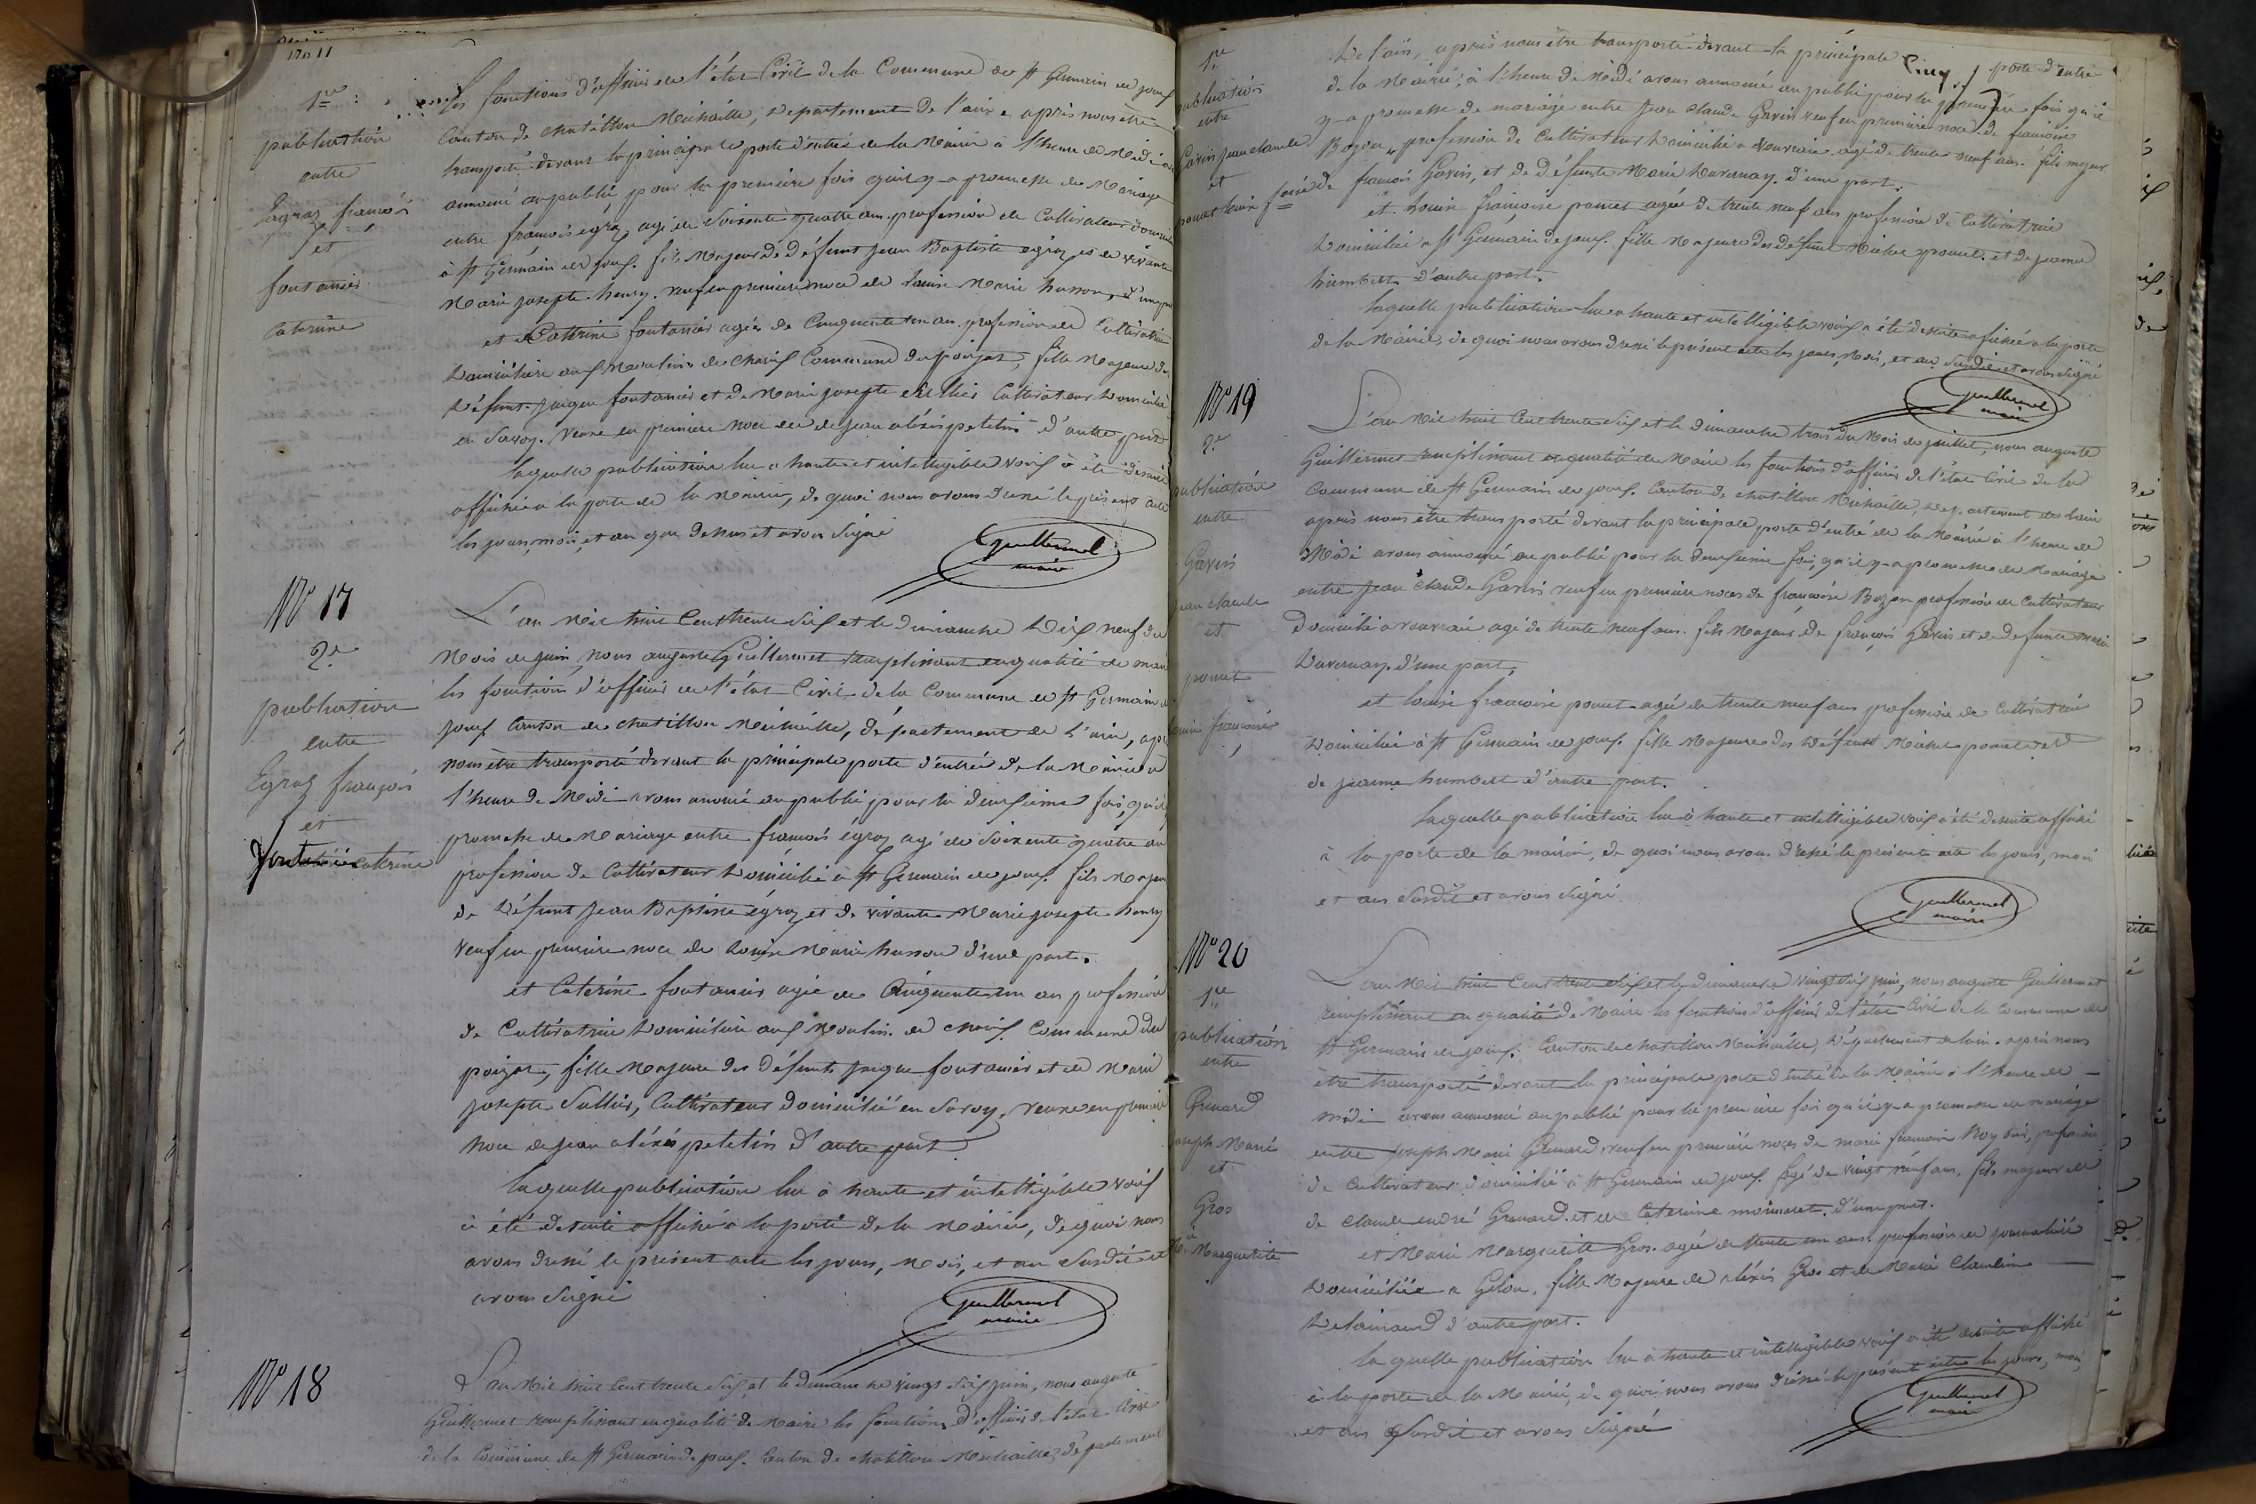 1re
publication
entre
Egraz françois
et
fontanier
Caterine
les fonctions d'officié de l'état Civil de la Commune de St Germain de joux
Canton de chatillon Michaille, département de l'ain, après nous être
transporté devant la principale porte d'entrée de la Mairie à l'heure de Midi
annoncé au public pour la première fois qu'il y a promesse de Mariage
entre françois égraz, agé de Soixente quatre ans profession de Cultivateur
à St Germain de joux. fils Majeur de Défunt jean Baptiste égraz et de vivante
Marie josepte henry. veuf en première noce de Louise Marie husson, d'une part
et Catterine fontanier agée de Cinquente un an profession de Cultivatrice
Domicilière aux Moulins de Charix Commune du poizat, fille Majeure de
Défunt jacque fontanier et de Marie josepte Sullier Cultivateur Domicilié
en Savoy. veuve en première noce de jean aléxis petetin d'autre part
laquelle publication lue à haute et intelligible voix à été desuite
affichée à la porte de la Mairie, de quoi nous avons dressé le présent acte
les jours, mois, et an que dessus et avons Signé
Guillermet
maire
No 17
2e
publication
entre
Egraz françois
et
fontanier catterine
L'an Mil huit Cent trente Six et le dimanche Dix neuf du
Mois de juin, nous auguste Guillermet remplissant en qualité de maire
les fonctions d'officié de l'état Civil de la Commune de St Germain de
joux Canton de chatillon Michaille, département de l'ain, après
nous être transporté devant la principale porte d'entrée de la Mairie a
l'heure de Midi avons anoncé au public pour la deuxième fois, qu'il
promesse de Mariage entre françois égraz agé de Soixente quatre an
profession de Cultivateur Domicilié à St Germain de joux. fils Majeur
de Défunt jean Baptiste égraz et de vivante Marie josepte henry
veuf en première noce de Louise Marie husson d'une part.
et Caterine fontanier agée de Cinquente un an profession
de Cultivatrice Domicilière aux Moulin de charix Commune du
poizat, fille Majeure des Défunts jacque fontanier et de Marie
josepte Sullier, Cultivateur Domicilié en Savoy, veuve en première
noce de jean aléxis petetin d'autre part
laquelle publication lue à haute et intelligible voix
à été desuite affiché à la porte de la Mairie, de quoi nous
avons dressé le présent acte les jours, Mois, et an Susdit et
avons Signé
Guillermet
maire
No 18
L'an Mil huit Cent trente Six et le dimanche vingt Six juin, nous auguste
Guillermet remplissant en qualité de Maire les fonctions d'officié de l'état Civil
de la Commune de St Germain de joux. Canton de chatillon Michaille, département
1re
publication
entre
Gavin jean claude
et
ponet Louise fsoise
De l'ain, après nous être transporté devant la principale porte d'entre
Cinq
de la Mairie, à l'heure de Midi avons annoncé au public pour la première fois qu'il
y a promesse de mariage entre jean claude Gavin veuf en première noce de françoise
Bozon profession de Cultivateur Domicilié à vouvraie agé de trente neuf ans. fils majeur
de françois Gavin, et de Défunte Marie Duvernay. d'une part.
et Louise françoise ponet agée de trente neuf ans profession de Cultivatrice
Domiciliée à St Germain de joux. fille Majeure des défunt Michel ponet. et de jeanne
humbert. D'autre part.
laquelle publication lue à haute et intelligible voix à été desuite affichée à la porte
de la Mairie, de quoi nous avons dressé le présent acte les jours, Mois, et an Susdit et avons Signé
Guillermet
maire
No 19
2e
publication
entre
Gavin
jean claude
et
ponet
Louise françoise
L'an Mil huit Cent trente Six et le dimanche trois du Mois de juillet, nous auguste
Guillermet remplissant en qualité de Maire les fonctions d'officié de l'état Civil de la
Commune de St Germain de joux. Canton de chatillon Michaille, département de l'ain
après nous être transporté devant la principale porte d'entré de la Mairie à l'heure de
Midi avons annoncé au public pour la deuxième fois, qu'il y a promesse de Mariage
entre jean claude Gavin veuf en première noces de françoise Bozon profession de Cultivateur
Domicilié à vouvraie agé de trente neuf ans. fils Majeur de françois Gavin et de defunte Marie
Duvernay. d'une part,
et Louise françoise ponet agée de trente neuf ans profession de Cultivatrice
Domicilié à St Germain de joux. fille Majeure des Défunt Michel ponet et
de jeanne humbert d'autre part.
laquelle publication lue à haute et intelligible voix à été desuite affiché
à la porte de la mairie, de quoi nous avons dressé le présent acte les jours, mois
et an Susdit et avons Signé
Guillermet
maire
No 20
1re
publication
entre
Grenard
joseph Marie
et
Gros
Mie Marguerite
L'an Mil huit Cent trente Six et le dimanche vingt Six juin, nous auguste Guillermet
remplissant en qualité de Maire les fonctions d'officié de l'état Civil de la Commune de
St Germain de joux. Canton de chatillon Michaille, Département de l'ain. après nous
être transporté devant la principale porte d'entré de la Mairie à l'heure de
midi avons annoncé au public pour la première fois qu'il y a promesse de mariage
entre joseph Marie Grenard, veuf en première noces de marie françoise profession
de Cultivateur Domicilié à St Germain de joux. agé de vingt neuf ans. fils majeur de
de claude andré Grenard. et de Caterine d'une part.
et Marie Marguerite Gros. agée de trente un ans. profession de journalière
Domiciliée a Gilon, fille Majeure de aléxis Gros et de Marie Claudine
d'autre part.
laquelle publication lue à haute et intelligible voix à été desuite affiché
à la porte de la Mairie, de quoi nous avons dressé le présent acte les jours, mois,
et an Susdit et avons Signé
Guillermet
maire